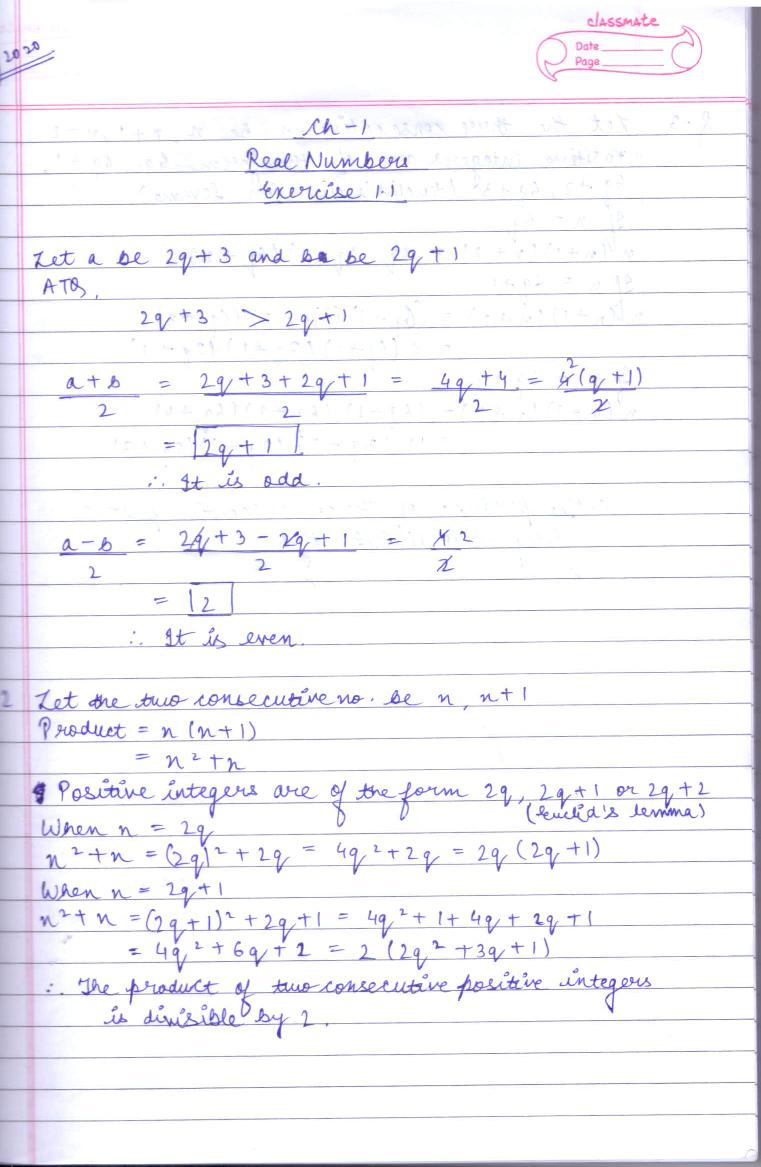 classmate
2020
Date
Page
Ch-1
Real Numbers
Exercise 1.1
Let a be 2q+3 and b be 2q+1
ATQ,
2q+3 > 2q+1
a+b/2 = 2q+3+2q+1/2 = 4q+4/2 = 4 2(q+1)/2
= 2q+1
∴ It is odd.
a-b/2 = 2q+3-2q+1/2 = 4 2/2
= 2
∴ It is even.
2 Let the two consecutive no. be n, n+1
Product = n(n+1)
= n²+n
Positive integers are of the form 2q, 2q+1 or 2q+2
(Euclid's lemma)
When n = 2q
n²+n = (2q)²+2q = 4q²+2q = 2q(2q+1)
When n = 2q+1
n²+n = (2q+1)²+2q+1 = 4q²+1+4q+2q+1
= 4q²+6q+2 = 2(2q²+3q+1)
∴ The product of two consecutive positive integers
is divisible by 2.